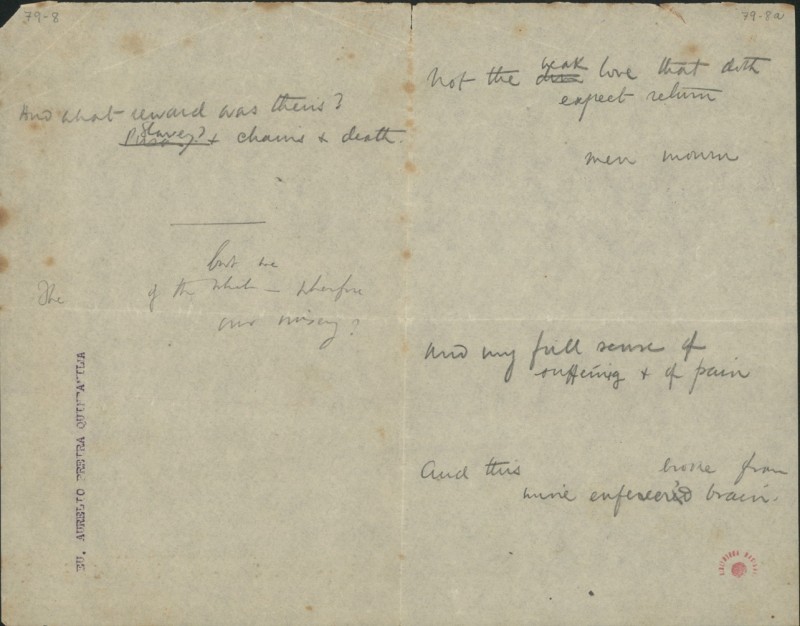 79-8
And what reward was theirs?
Slavery?
& chains & death.
but we
The of the what — wherefore
our misery?
EU, AURELIO PESTRA QUINTANILHA
79-8a
Not the weak love that doth
expect return
men mourn
And my full sense of
suffering & of pain
And this broke from
mine enfevered brain.